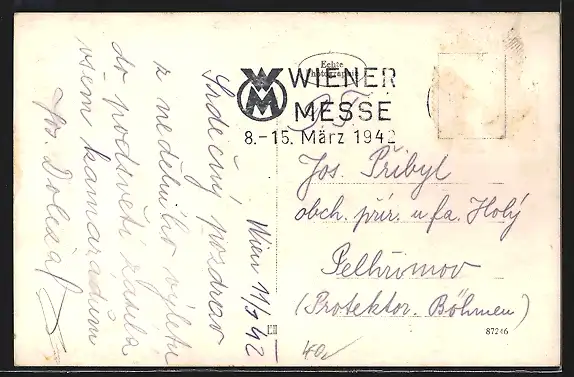 Wien 11/3 42
Srdečný pozdrav
z nedělního výletu
do podsvětí zasílá
všem kamarádům
Jos. Doležal
Echte
Photographie
WIENER
MESSE
8.-15. März 1942
Jos. Přibyl
obch. přír. u fa. Holý
Pelhřimov
(Protektor. Böhmen)
87246
40,-